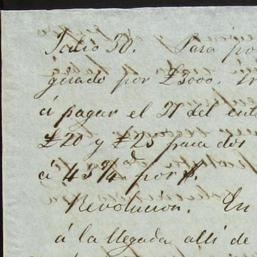 Julio 30. Para po
girado por £3000.
á pagar el 27 del
£20 y £25 para dos
á 45¾ᵈ por p.
Revolucion. En
á la llegada alli de